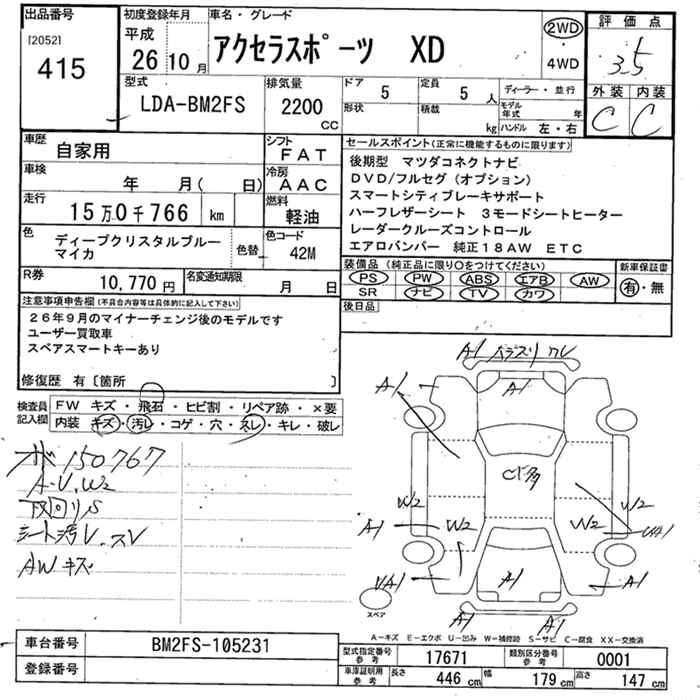 出品番号
[2052]
415
初度登録年月
平成
26 10 月
車名・グレード
アクセラスポーツ XD
2WD
・
4WD
評価点
3.5
外装 内装
C C
型式
LDA-BM2FS
排気量
2200
CC
ドア 5
形状
定員 5 人
積載 kg
ディーラー・並行
モデル年式 年
ハンドル 左・右
車歴
自家用
シフト
FAT
車検
年 月( 日)
冷房
AAC
走行
15万0千766 km
燃料
軽油
色
ディープクリスタルブルー
マイカ
色替
色コード
42M
R券
10,770円
名変通知期限
月 日
セールスポイント(正常に機能するものに限ります)
後期型 マツダコネクトナビ
DVD/フルセグ(オプション)
スマートシティブレーキサポート
ハーフレザーシート 3モードシートヒーター
レーダークルーズコントロール
エアロバンパー 純正18AW ETC
装備品(純正品に限り○をつけてください)
PS PW ABS エアB AW
SR ナビ TV カワ
新車保証書
有・無
後日品
注意事項申告欄(不具合内容等は具体的に記入して下さい)
26年9月のマイナーチェンジ後のモデルです
ユーザー買取車
スペアスマートキーあり
修復歴 有〔箇所 〕
検査員
記入欄
FW キズ・飛石・ヒビ割・リペア跡・×要
内装 キズ・汚レ・コゲ・穴・スレ・キレ・破レ
150767
A・U,W2
取回りS
シート汚レ・スレ
AWキズ
A1
A1
A1
W2
A1
W2
W2
W2
UA1
UA1
A1
A1
A1
A1
スペア
A-キズ E-エクボ U-凹み W-補修跡 S-サビ C-腐食 XX-交換済
車台番号
BM2FS-105231
登録番号
型式指定番号
参考
17671
類別区分番号
参考
0001
車庫証明用
参考
長さ 446 cm 幅 179 cm 高さ 147 cm